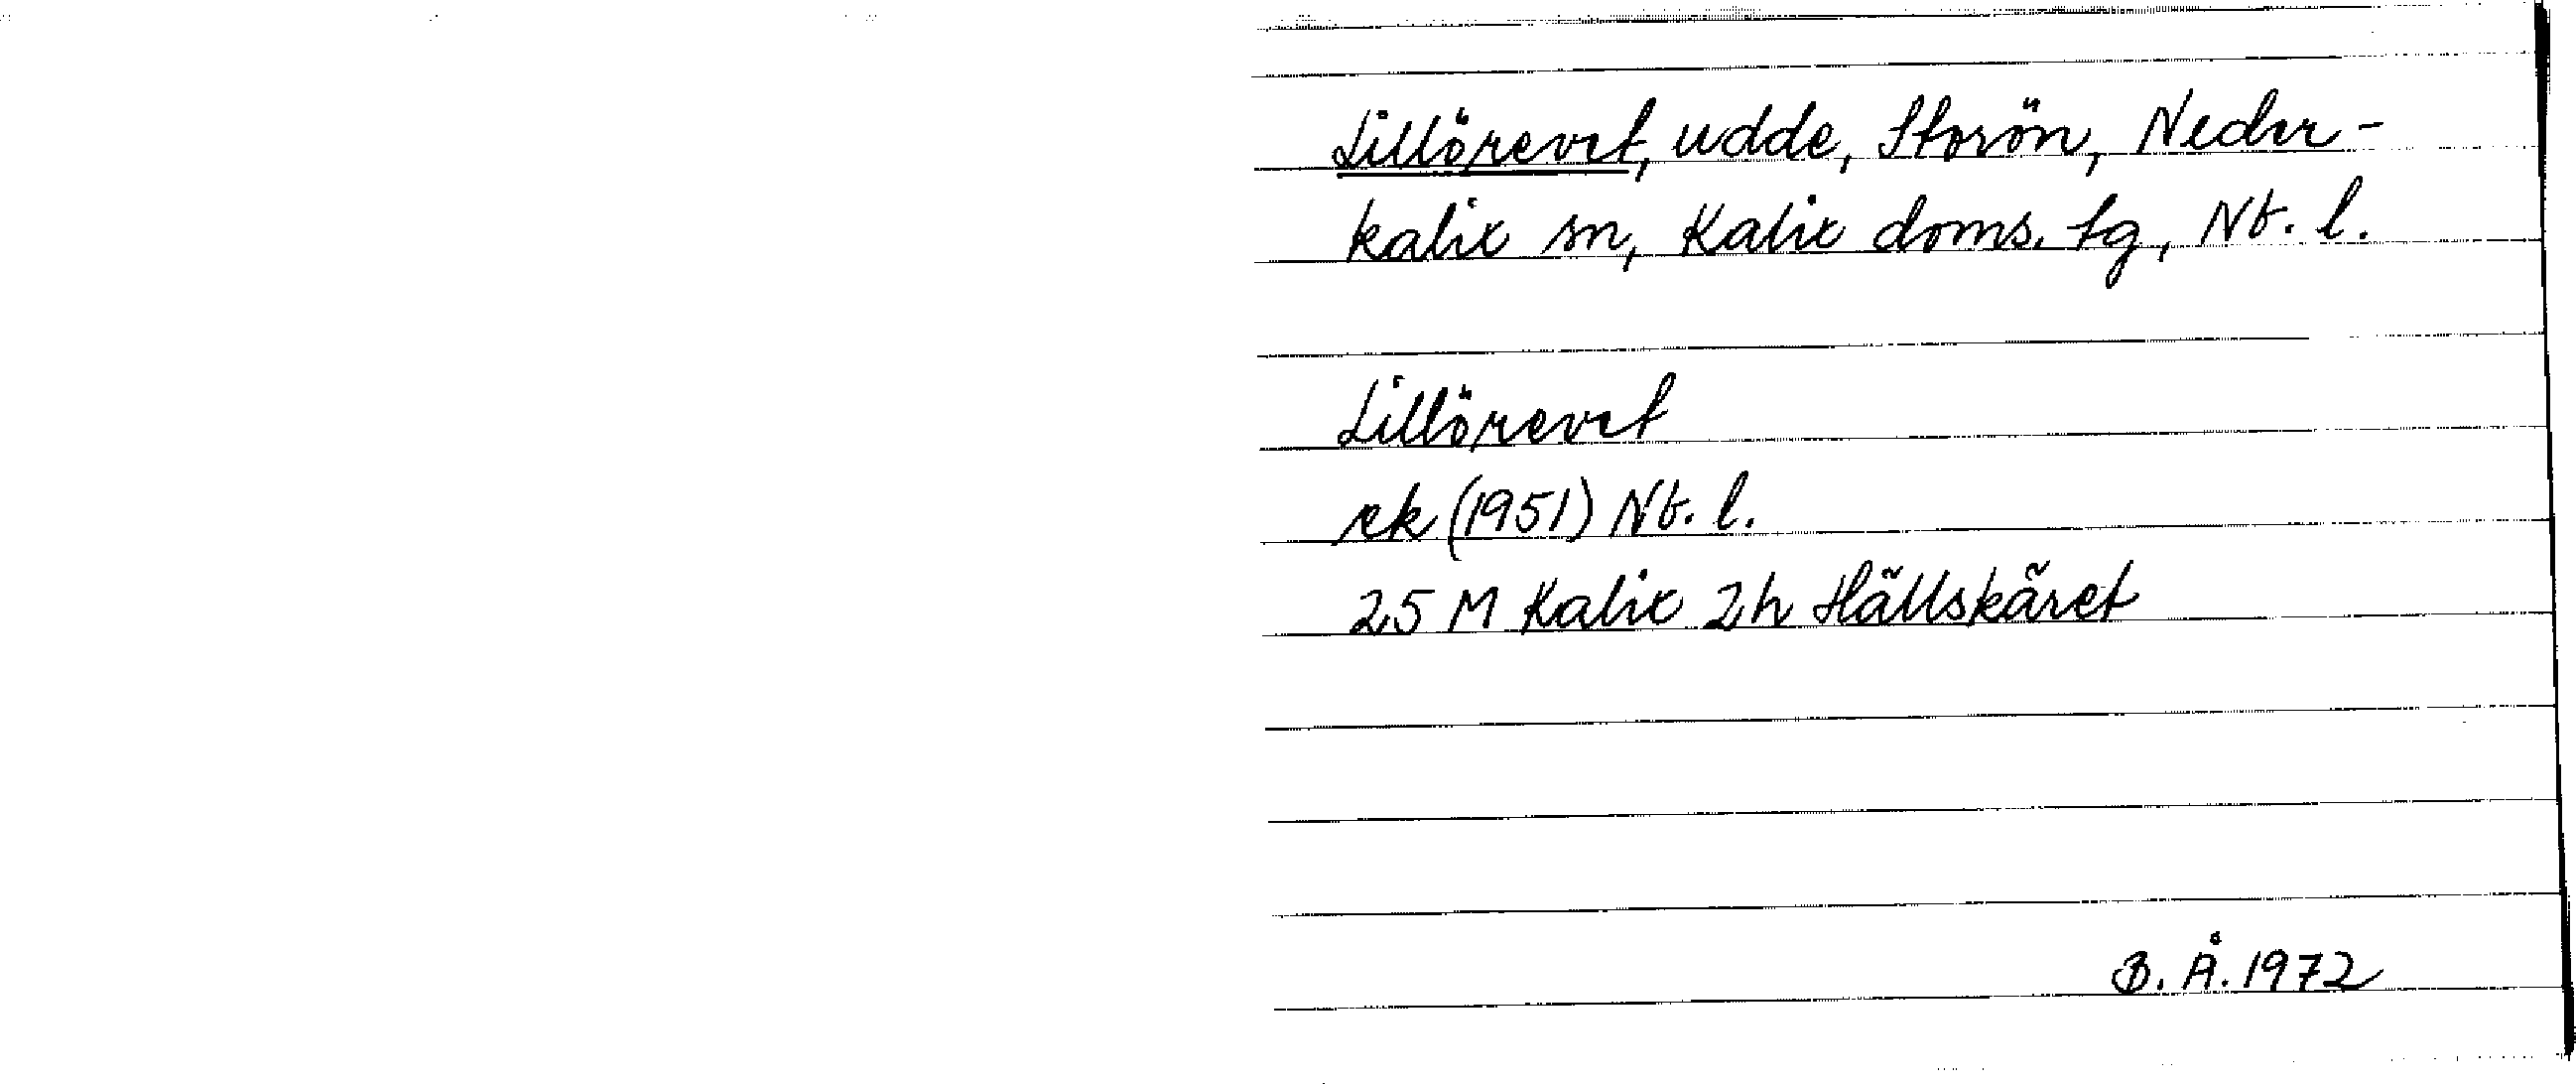 Lillörevet, udde, Storön, Neder-
kalix sn, Kalix doms. tg, Nb. l.
Lillörevet
ek (1951) Nb. l.
25 M Kalix 2h Hällskäret
B. Å. 1972